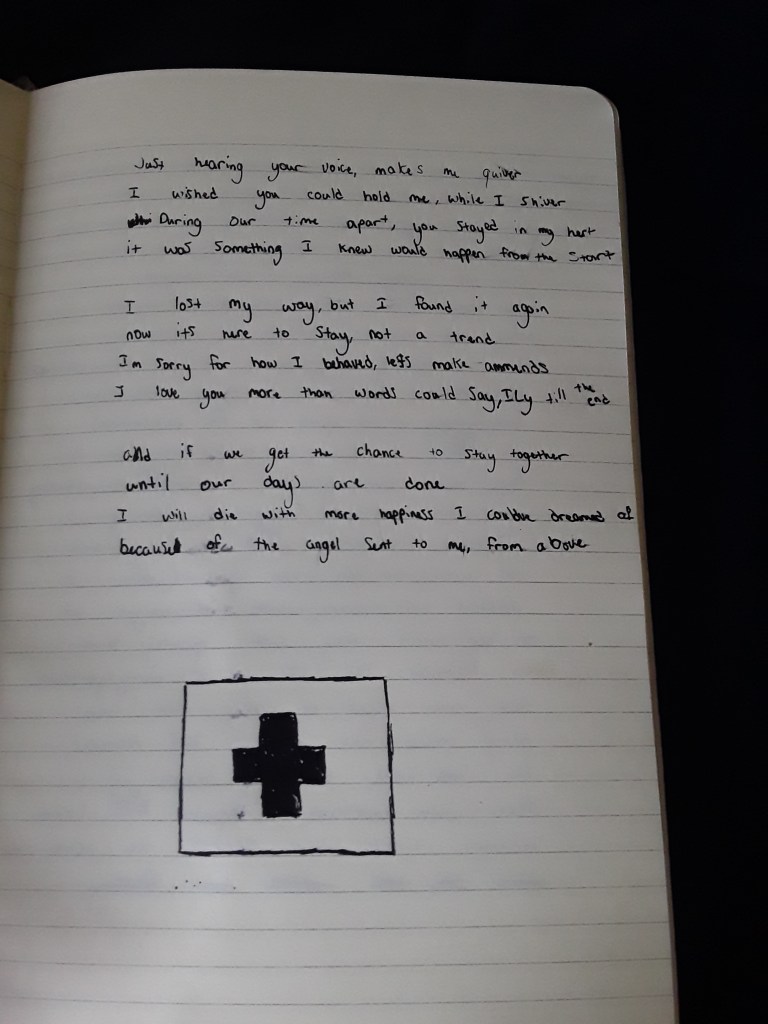 Just hearing your voice, makes me quiver
I wished you could hold me, while I shiver
During our time apart, you stayed in my hert
it was something I knew would happen from the start
I lost my way, but I found it again
now its here to stay, not a trend
Im sorry for how I behaved, lets make ammends
I love you more than words could say, ILy till the end
and if we get the chance to stay together
until our days are done
I will die with more happiness I dreamed of
because of the angel sent to me, from above